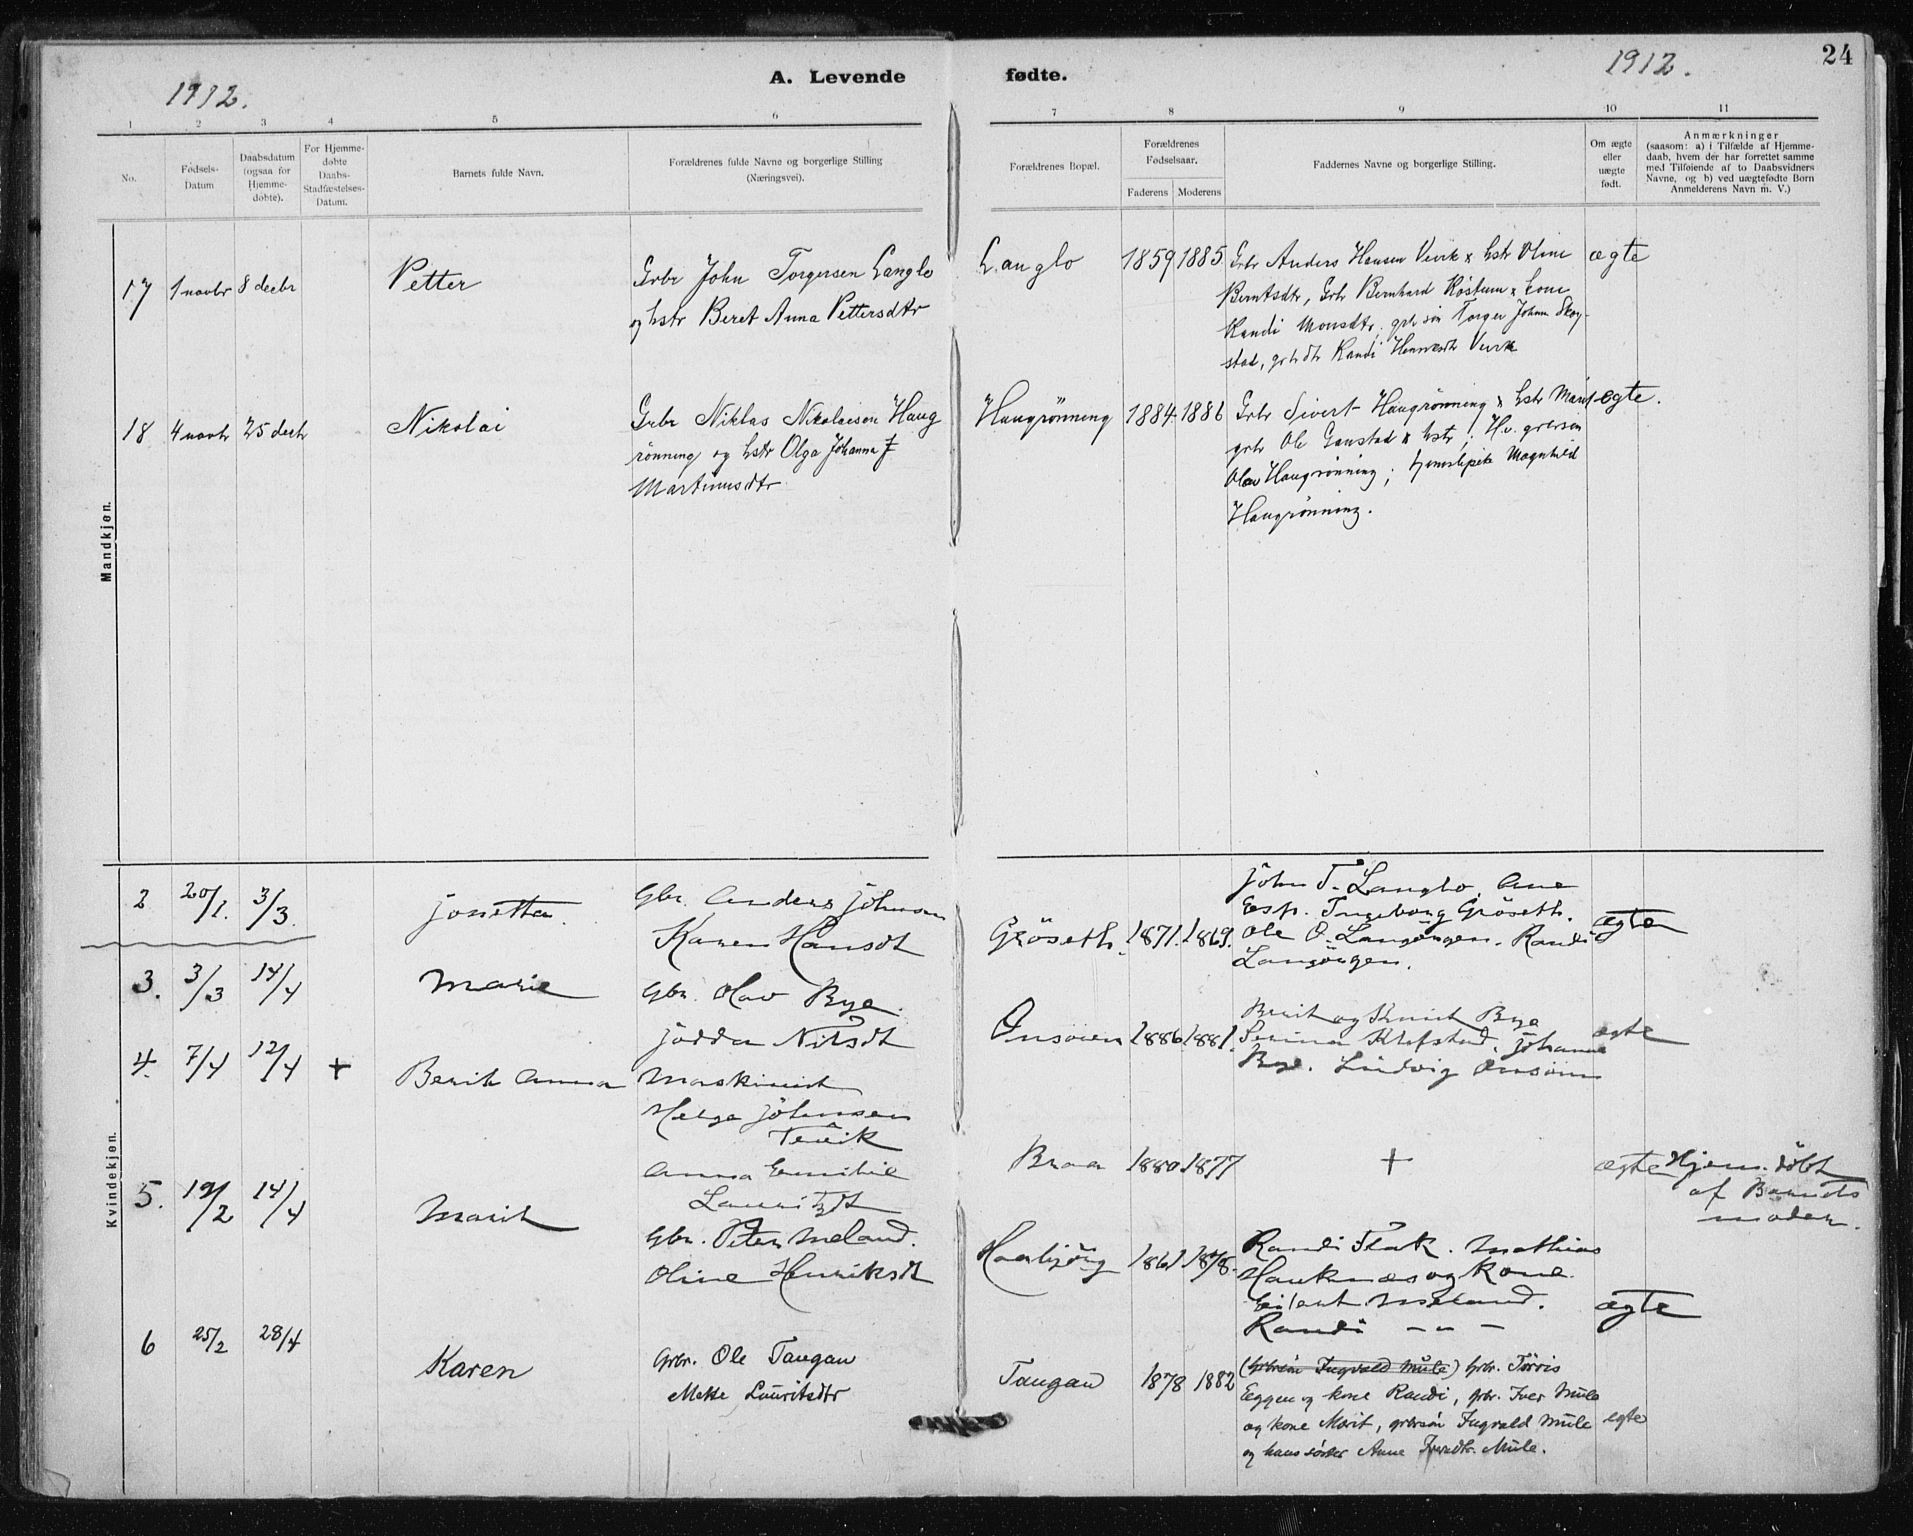 1912.
A. Levende fødte.
1912.
24
1 2 3 4 5 6 7 8 9 10 11
No.
Fødsels-
Datum
Daabsdatum
(ogsaa for
Hjemme-
døbte).
For Hjemme-
døbte
Daabs-
Stadfæstelses-
Datum.
Barnets fulde Navn.
Forældrenes fulde Navne og borgerlige Stilling
(Næringsvei).
Forældrenes Bopæl.
Forældrenes
Fødselsaar.
Faderens Moderens
Faddernes Navne og borgerlige Stilling.
Om ægte
eller
uægte
født.
Anmærkninger
(saasom: a) i Tilfælde af Hjemme-
daab, hvem der har forrettet samme
med Tilføiende af to Daabsvidners
Navne, og b) ved uægtefødte Børn
Anmelderens Navn m. V.)
Mandkjøn.
17 1 novbr 8 decbr
Petter
Grbr John Torgersen Langlo
og hstr Beret Anna Pettersdtr
Langlo
1859 1885
Grbr Anders Hansen Vevik & hstr Oline
Berntsdtr, Grbr Bernhard Röstum & kone
Randi Monsdtr, grbr sön Torger Johnsn Skog-
stad, grbrdtr Randi Vevik
ægte
18 4 novbr 25 decbr
Nikolai
Grbr Niklas Nikolaisen Haug
rönning og hstr Olga Johanna J
Martinusdtr
Haugrönning
1884 1886
Grbr Sivert Haugrönning & hstr Marit
grbr Ole Ganstad & hstr; H.v. grbrsön
Olav Haugrönning; hjemslpike Magnhild
Haugrönning.
ægte.
Kvindekjøn.
2 20/1. 3/3.
Jonetta.
Gbr. Anders Johnsen
Karen Hansdt
Gröseth. 1871. 1869.
John T. Langlo, Ane
Esp. Ingeborg Gröseth.
Ole O. Langörgen. Randi
Langörgen.
ægte
3. 3/3 14/4
Marie
Gbr. Olav Bye.
Jödda Nilsdt
Onsöien 1886. 1881.
Berit og Knut Bye
Serina Klefstad. Johanna
Bye. Ludvig Onsöien
ægte
4. 7/4 12/4 +
Berit Anna
Maskinist
Helge Johnsen
Tevik
Anna Emilie
Lauritzdt
Braa 1880. 1877
+
ægte
Hjem. döbt
af Barnets
moder.
5. 19/2 14/4
Marit
Gbr. Peter Meland.
Oline Henriksdt
Haarbjörg 1861. 1878.
Randi Flak. Mathias
Hauknes og Kone
Eilert Meland.
Randi — „ —
ægte
6 25/2 28/4
Karen
Grbr. Ole Tangan
Mette Lauritsdtr
Tangan 1878 1882
(Grbrsön Ingvald Mule) Grbr. Törris
Eggen og kone Randi, grbr. Iver Mule
og kone Marit, grbrsön Ingvald Mule
og hans söster Anne Iversdtr. Mule.
egte